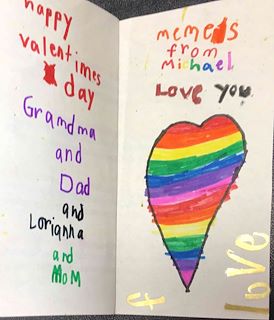 happy
valentimes
day
Grandma
and
Dad
and
Lorianna
and
MOM
memes
from
Michael
Love you
f
love